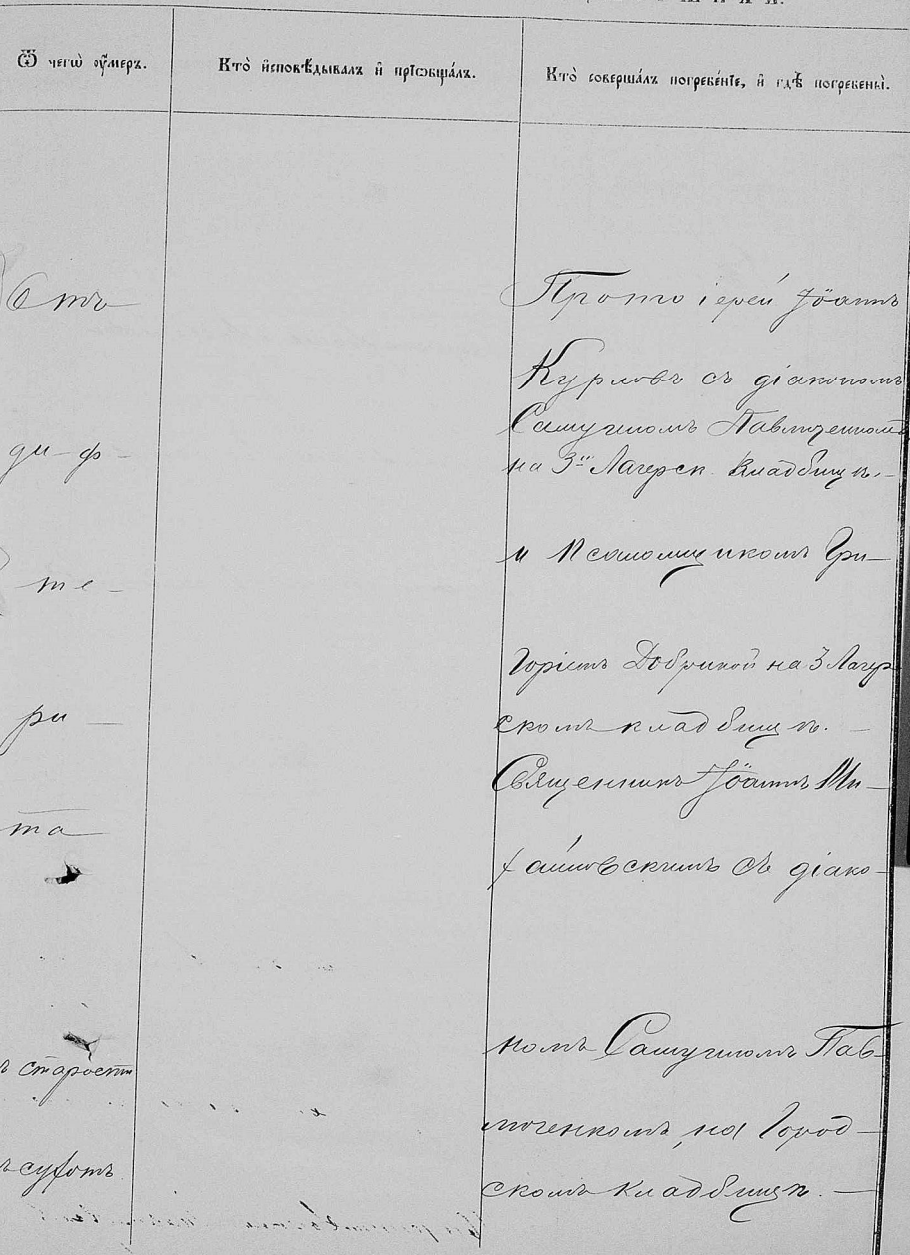 Ѿ чегѡ ᲂу҆́меръ.
Кто̀ и҆сповѣ́дывалъ и҆ прїѡбща́лъ.
Кто̀ соверша́лъ погребе́нїе, и҆ гдѣ̀ погребены̀.
Отъ
Протоіерей Іоаннъ
Курловъ съ діакономъ
Самуиломъ Павлюченкомъ
ди-ф-
на 3м Лагерск. Кладбищѣ.-
и Псаломщикомъ Гри-
те-
горіемъ на 3 Лагер
ри-
скомъ кладбищѣ.-
Священникъ Іоаннъ Ми-
та
хайловскимъ съ діако-
номъ Самуиломъ Пав-
ъ старости
люченкомъ, на Город-
ъ сухотъ
скомъ кладбищѣ.-